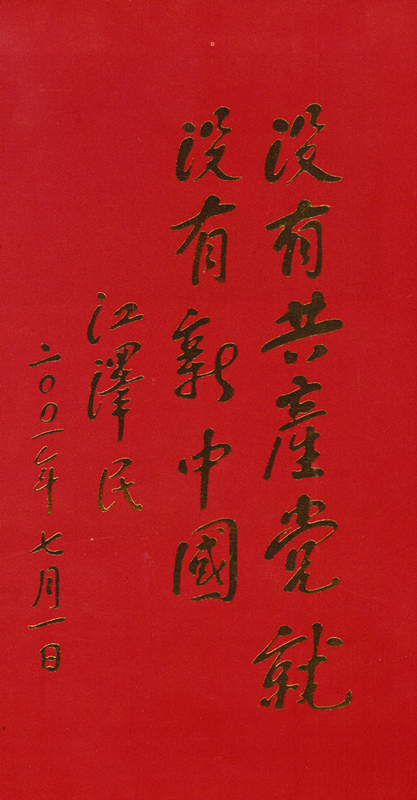 没有共產党就
没有新中國
江澤民
二〇〇一年七月一日